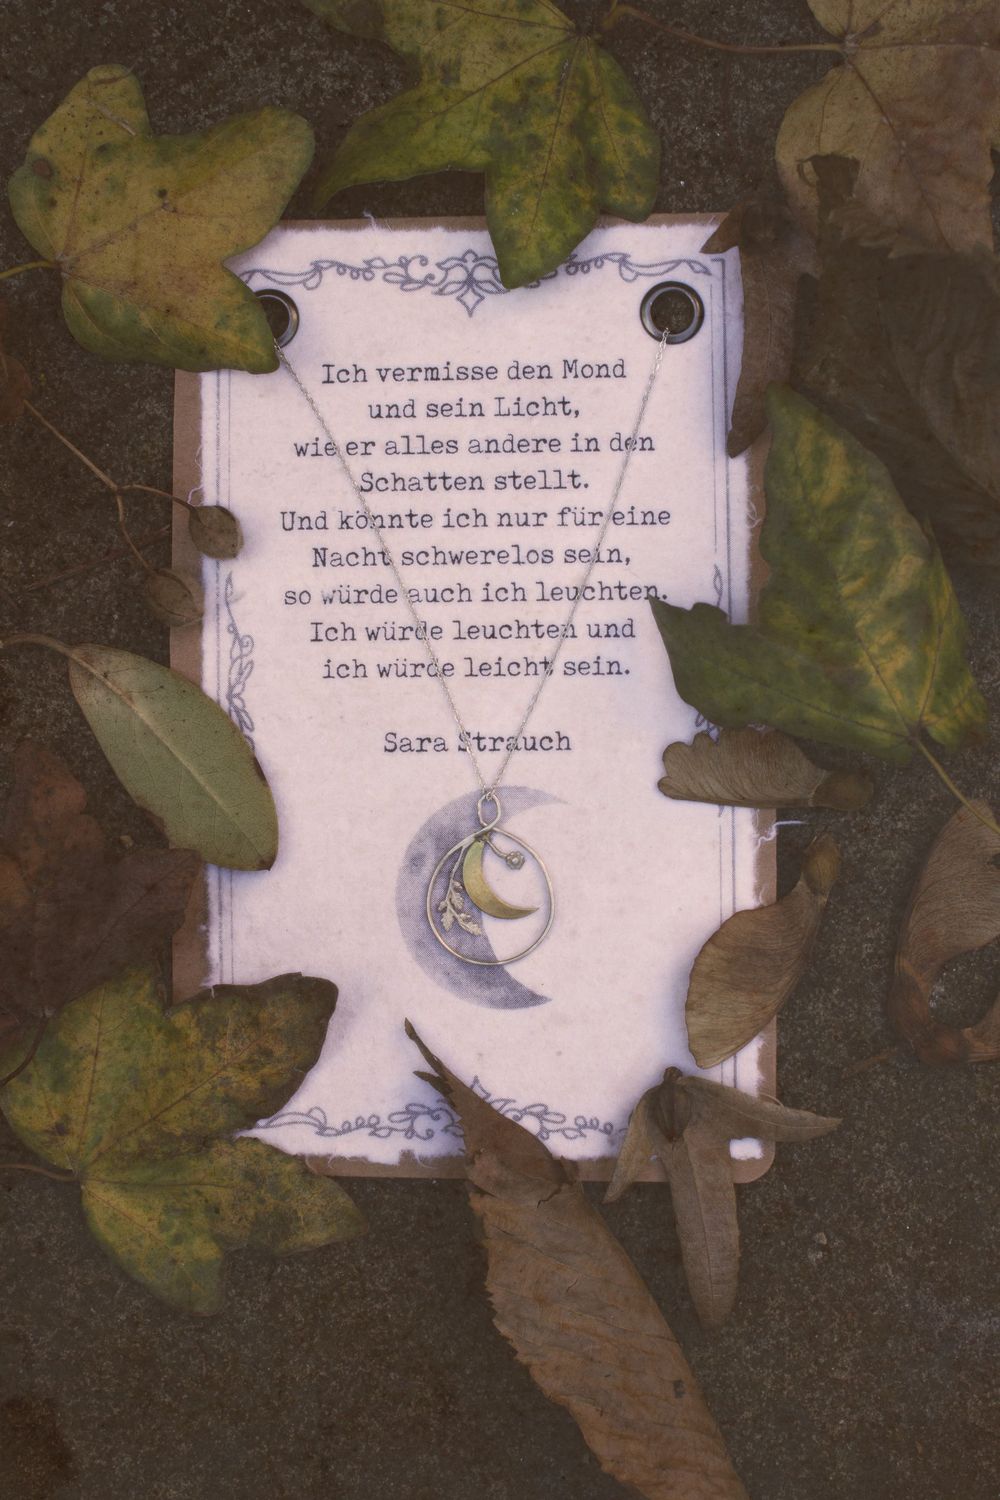 Ich vermisse den Mond
und sein Licht,
wie er alles andere in den
Schatten stellt.
Und könnte ich nur für eine
Nacht schwerelos sein,
so würde auch ich leuchten.
Ich würde leuchten und
ich würde leicht sein.
Sara Strauch